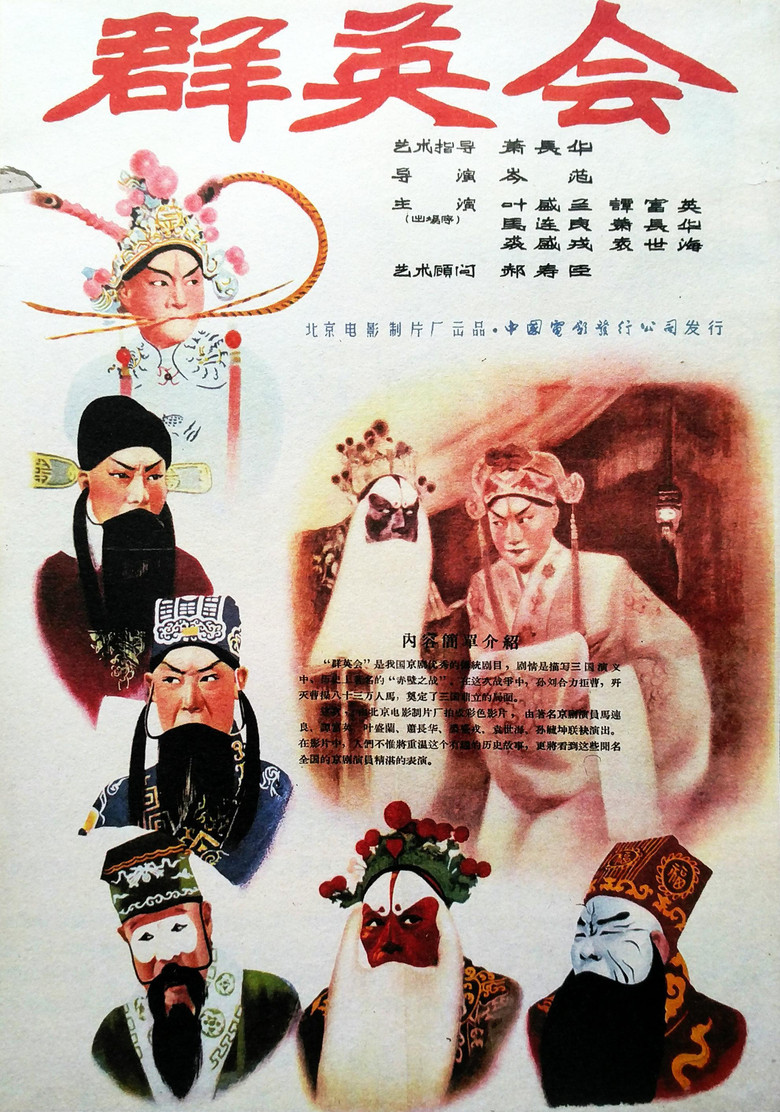 群英会
艺术指导 萧長华
导 演 岑范
主 演 叶盛兰 譚富英
(出場序) 馬连良 萧長华
裘盛戎 袁世海
艺术顾问 郝寿臣
北京电影制片厂出品·中國電影發行公司发行
内容簡單介紹
“群英会”是我国京剧优秀的傳統剧目，剧情是描写三国演文
中、历史上著名的“赤壁之战”。在这次战爭中，孙刘合力拒曹，歼
灭曹操八十三万人馬，奠定了三国鼎立的局面。
这次，由北京电影制片厂拍成彩色影片，由著名京剧演員馬連
良、譚富英、叶盛蘭、蕭長华、裘盛戎、袁世海、孙毓坤联袂演出。
在影片中，人們不惟將重温这个有趣的历史故事，更將看到这些聞名
全国的京剧演員精湛的表演。
福